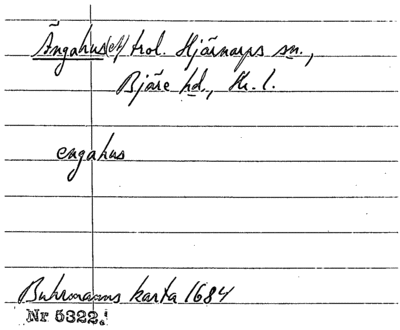 Ängahus (et) trol. Hjärnarps sn.,
Bjäre hd., Kr. l.
engahus
Buhrmanns karta 1684
Nr 5322.